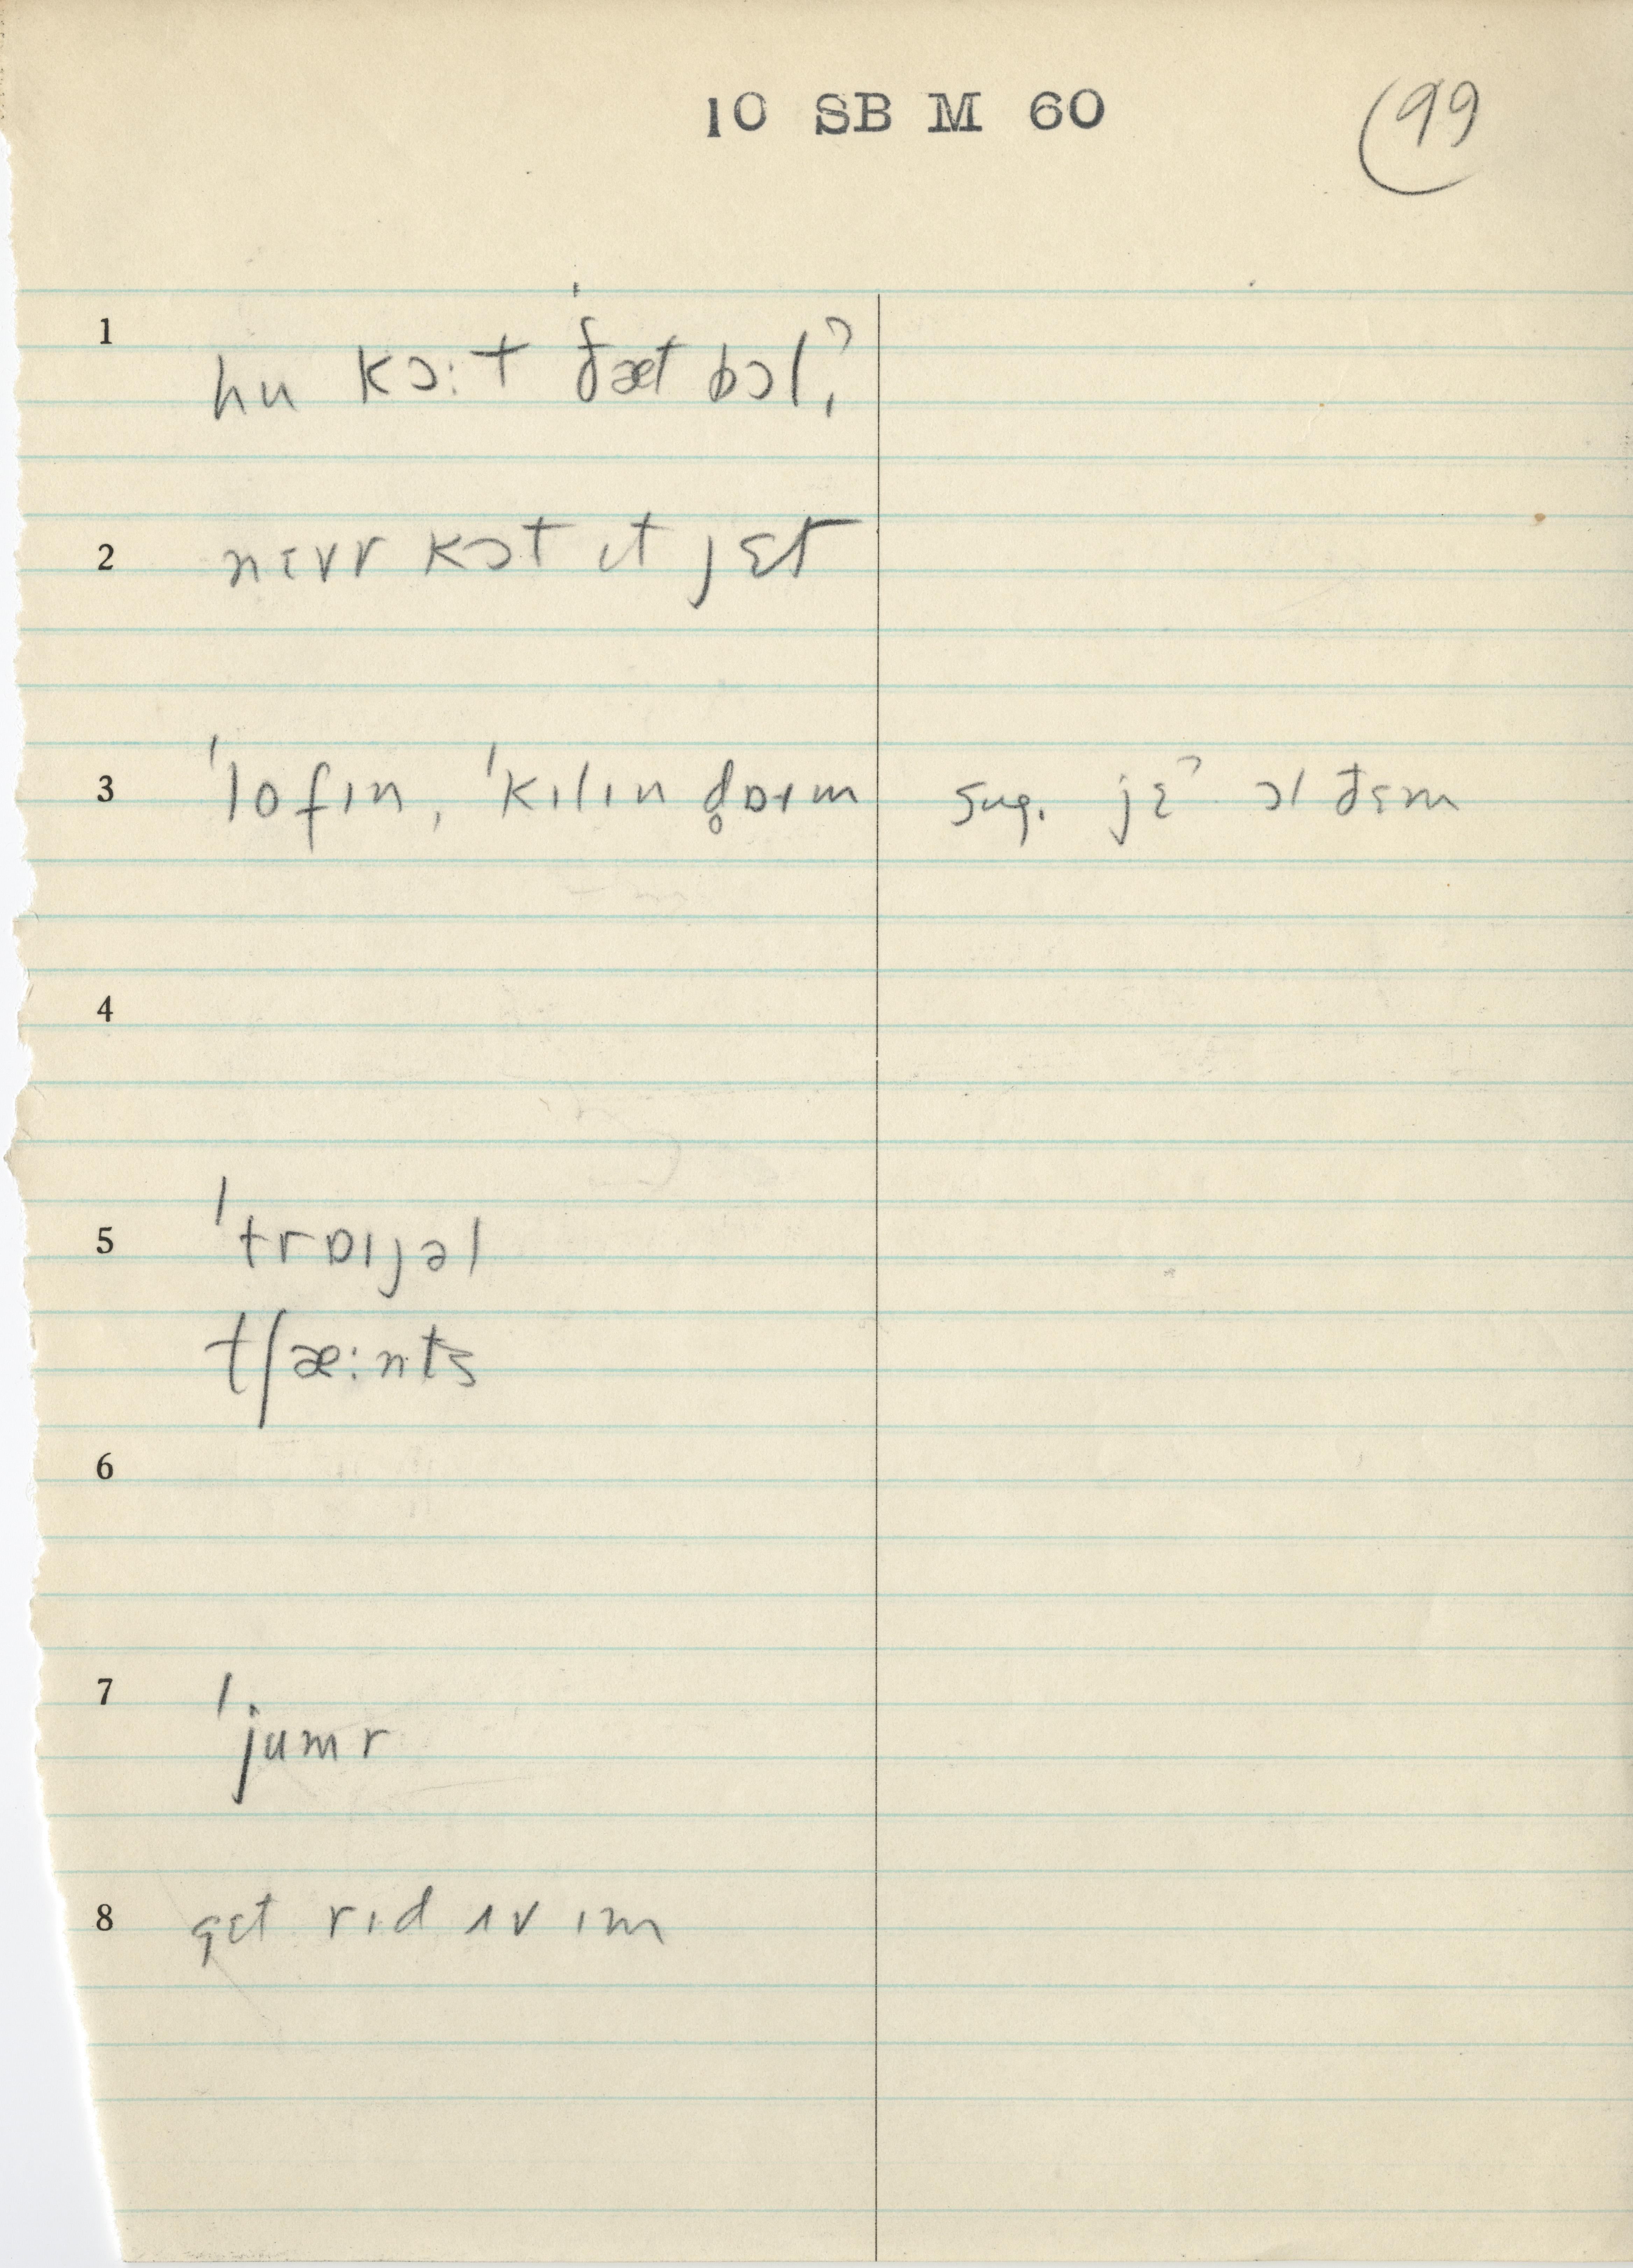 10 SB M 60
99
1
hu kɔ:t ˈðæt bɔl?
2
nɛvr kɔt ɪt jɛt
3
ˈlofɪn, ˈkɪlɪn d̥ɒɪm sug. jɛˀ ɔl ðɛm
4
5
ˈtrɒɪjəl
tʃæ:nts
6
7
ˈjumr
8
gɛt rɪd ʌv ɪm